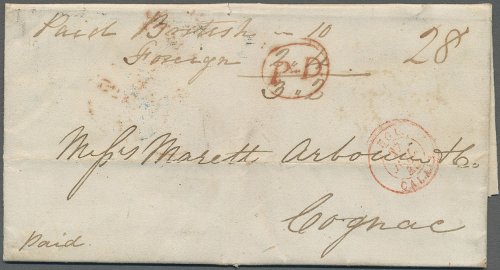 Paid British — 10
28
Foreign 2.4
P.D
3.2
Messrs Marett Arbouin & Co.
CALA
Cognac
Paid.